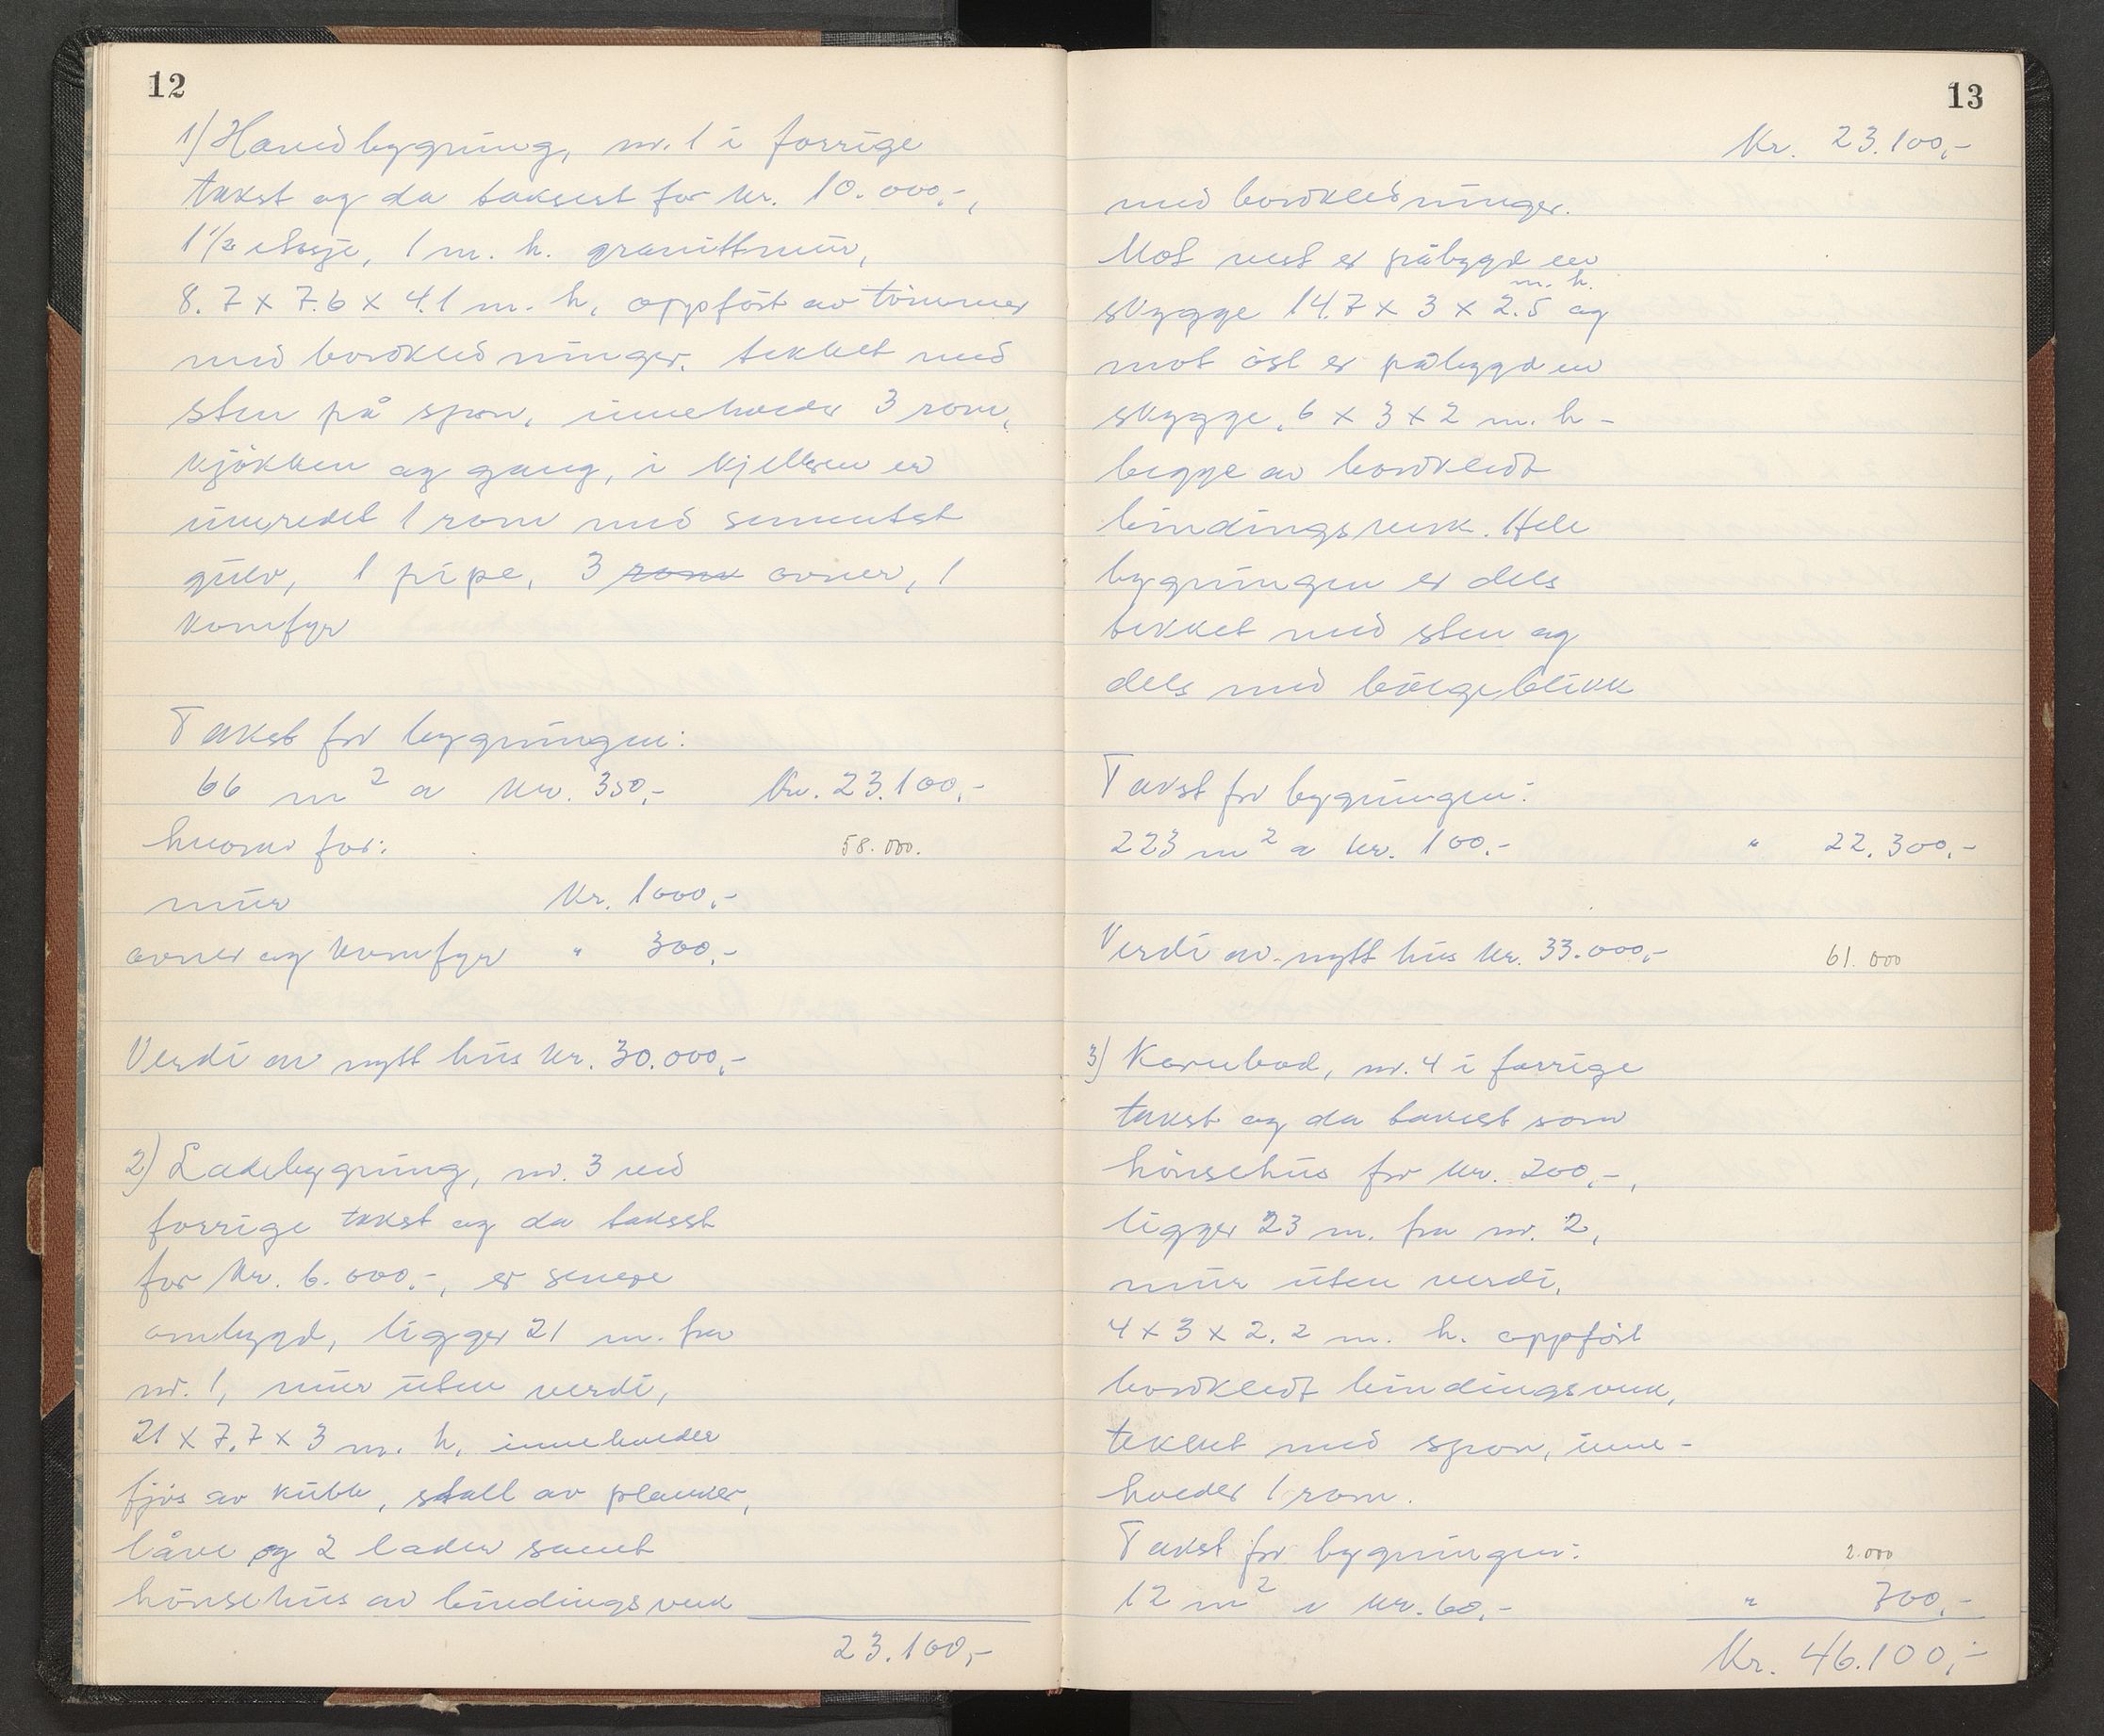 12
1) Hovedbygning, nr. 1 i forrige
takst og da taksert for kr. 10.000,-,
1 1/2 etasje, 1 m. h. granittmur,
8.7 x 7.6 x 4.1 m. h, oppført av tømmer
med bordkledninger. tekket med
sten på spon, inneholder 3 rom,
kjøkken og gang, i kjelleren er
innredet 1 rom med sementert
gulv, 1 pipe, 3 rom ovner, 1
komfyr
Takst for bygningen:
66 m2 a kr. 350,- Kr. 23.100,-
hvorav for: 58.000.
mur Kr. 1000,-
ovner og komfyr " 300,-
Verdi av nytt hus kr. 30.000,-
2) Ladebygning, nr. 3 ved
forrige takst og da taksert
for kr. 6.000,-, er senere
ombygd, ligger 21 m. fra
nr. 1, mur uten verdi,
21 x 7.7 x 3 m. h, inneholder
fjøs av kubb, stall av planker,
låve og 2 lader samt
hønsehus av bindingsverk
23.100,-
13
Kr. 23.100,-
med bordkledninger.
Mot vest er påbygd en
m. h.
skygge 14.7 x 3 x 2.5 og
mot øst er påbygd en
skygge, 6 x 3 x 2 m. h -
begge av bordkledt
bindingsverk. Hele
bygningen er dels
tekket med sten og
dels med bølgeblikk
Takst for bygningen:
223 m2 a kr. 100.- " 22.300,-
Verdi av nytt hus kr. 33.000,- 61.000
3) Kornbod, nr. 4 i forrige
takst og da taksert som
hønsehus for kr. 200,-,
ligger 23 m. fra nr. 2,
mur uten verdi,
4 x 3 x 2.2 m. h. oppført
bordkledt bindingsverk,
tekket med spon, inne-
holder 1 rom.
Takst for bygningen: 2.000
12 m2 a kr. 60,- " 700,-
Kr. 46.100,-